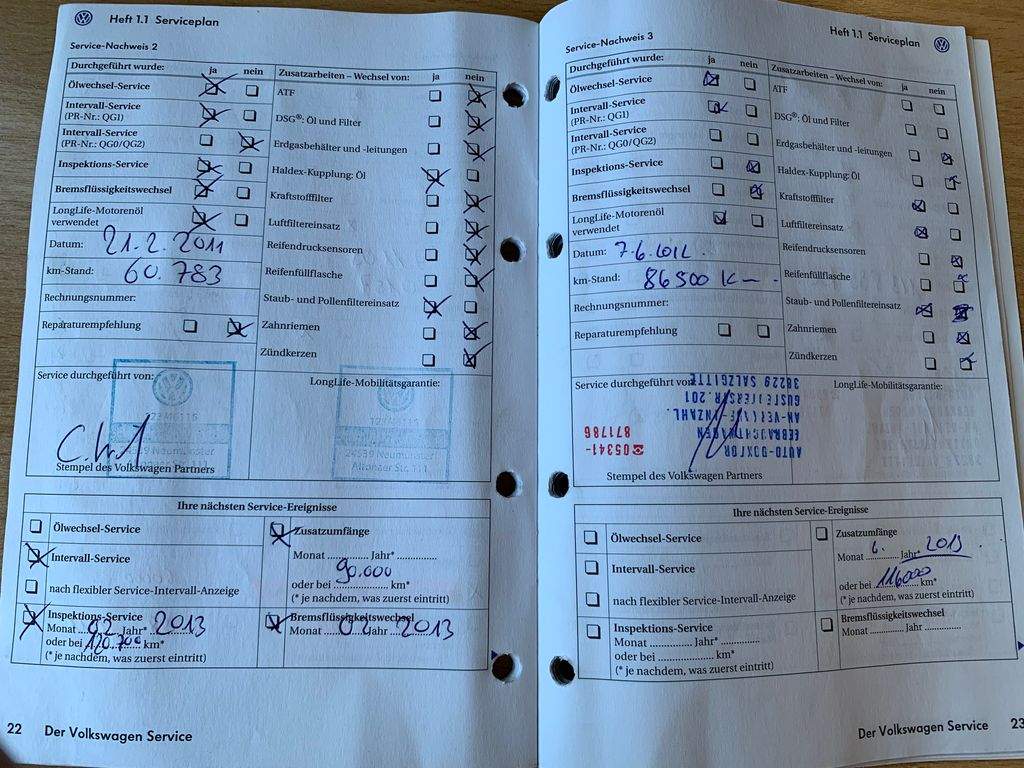 Heft 1.1 Serviceplan
Service-Nachweis 2
Durchgeführt wurde: ja nein
Ölwechsel-Service
Intervall-Service
(PR-Nr.: QG1)
Intervall-Service
(PR-Nr.: QG0/QG2)
Inspektions-Service
Bremsflüssigkeitswechsel
LongLife-Motorenöl
verwendet
Datum: 21.2.2011
km-Stand: 60.783
Rechnungsnummer:
Reparaturempfehlung
Zusatzarbeiten – Wechsel von: ja nein
ATF
DSG®: Öl und Filter
Erdgasbehälter und -leitungen
Haldex-Kupplung: Öl
Kraftstofffilter
Luftfiltereinsatz
Reifendrucksensoren
Reifenfüllflasche
Staub- und Pollenfiltereinsatz
Zahnriemen
Zündkerzen
Service durchgeführt von:
24539 Neumünster
Altonaer Str. 111
Stempel des Volkswagen Partners
LongLife-Mobilitätsgarantie:
24539 Neumünster
Altonaer Str. 111
Ihre nächsten Service-Ereignisse
Ölwechsel-Service
Intervall-Service
nach flexibler Service-Intervall-Anzeige
Zusatzumfänge
Monat .............. Jahr* ..............
90.000
oder bei ................... km*
(* je nachdem, was zuerst eintritt)
Inspektions-Service
Monat 02 Jahr* 2013
oder bei 120.700 km*
(* je nachdem, was zuerst eintritt)
Bremsflüssigkeitswechsel
Monat Jahr 2013
22 Der Volkswagen Service
Heft 1.1 Serviceplan
Service-Nachweis 3
Durchgeführt wurde: ja nein
Ölwechsel-Service
Intervall-Service
(PR-Nr.: QG1)
Intervall-Service
(PR-Nr.: QG0/QG2)
Inspektions-Service
Bremsflüssigkeitswechsel
LongLife-Motorenöl
verwendet
Datum: 7.6.2012
km-Stand: 86500 K
Rechnungsnummer:
Reparaturempfehlung
Zusatzarbeiten – Wechsel von: ja nein
ATF
DSG®: Öl und Filter
Erdgasbehälter und -leitungen
Haldex-Kupplung: Öl
Kraftstofffilter
Luftfiltereinsatz
Reifendrucksensoren
Reifenfüllflasche
Staub- und Pollenfiltereinsatz
Zahnriemen
Zündkerzen
Service durchgeführt von:
AUTO-DOKTOR
GEBRAUCHTWAGEN
38229 SALZGITTE
☎05341-
871786
Stempel des Volkswagen Partners
LongLife-Mobilitätsgarantie:
Ihre nächsten Service-Ereignisse
Ölwechsel-Service
Intervall-Service
nach flexibler Service-Intervall-Anzeige
Zusatzumfänge
Monat 6. Jahr* 2013
oder bei 116000 km*
(* je nachdem, was zuerst eintritt)
Inspektions-Service
Monat .............. Jahr* ..............
oder bei ................... km*
(* je nachdem, was zuerst eintritt)
Bremsflüssigkeitswechsel
Monat .............. Jahr ..............
Der Volkswagen Service 23